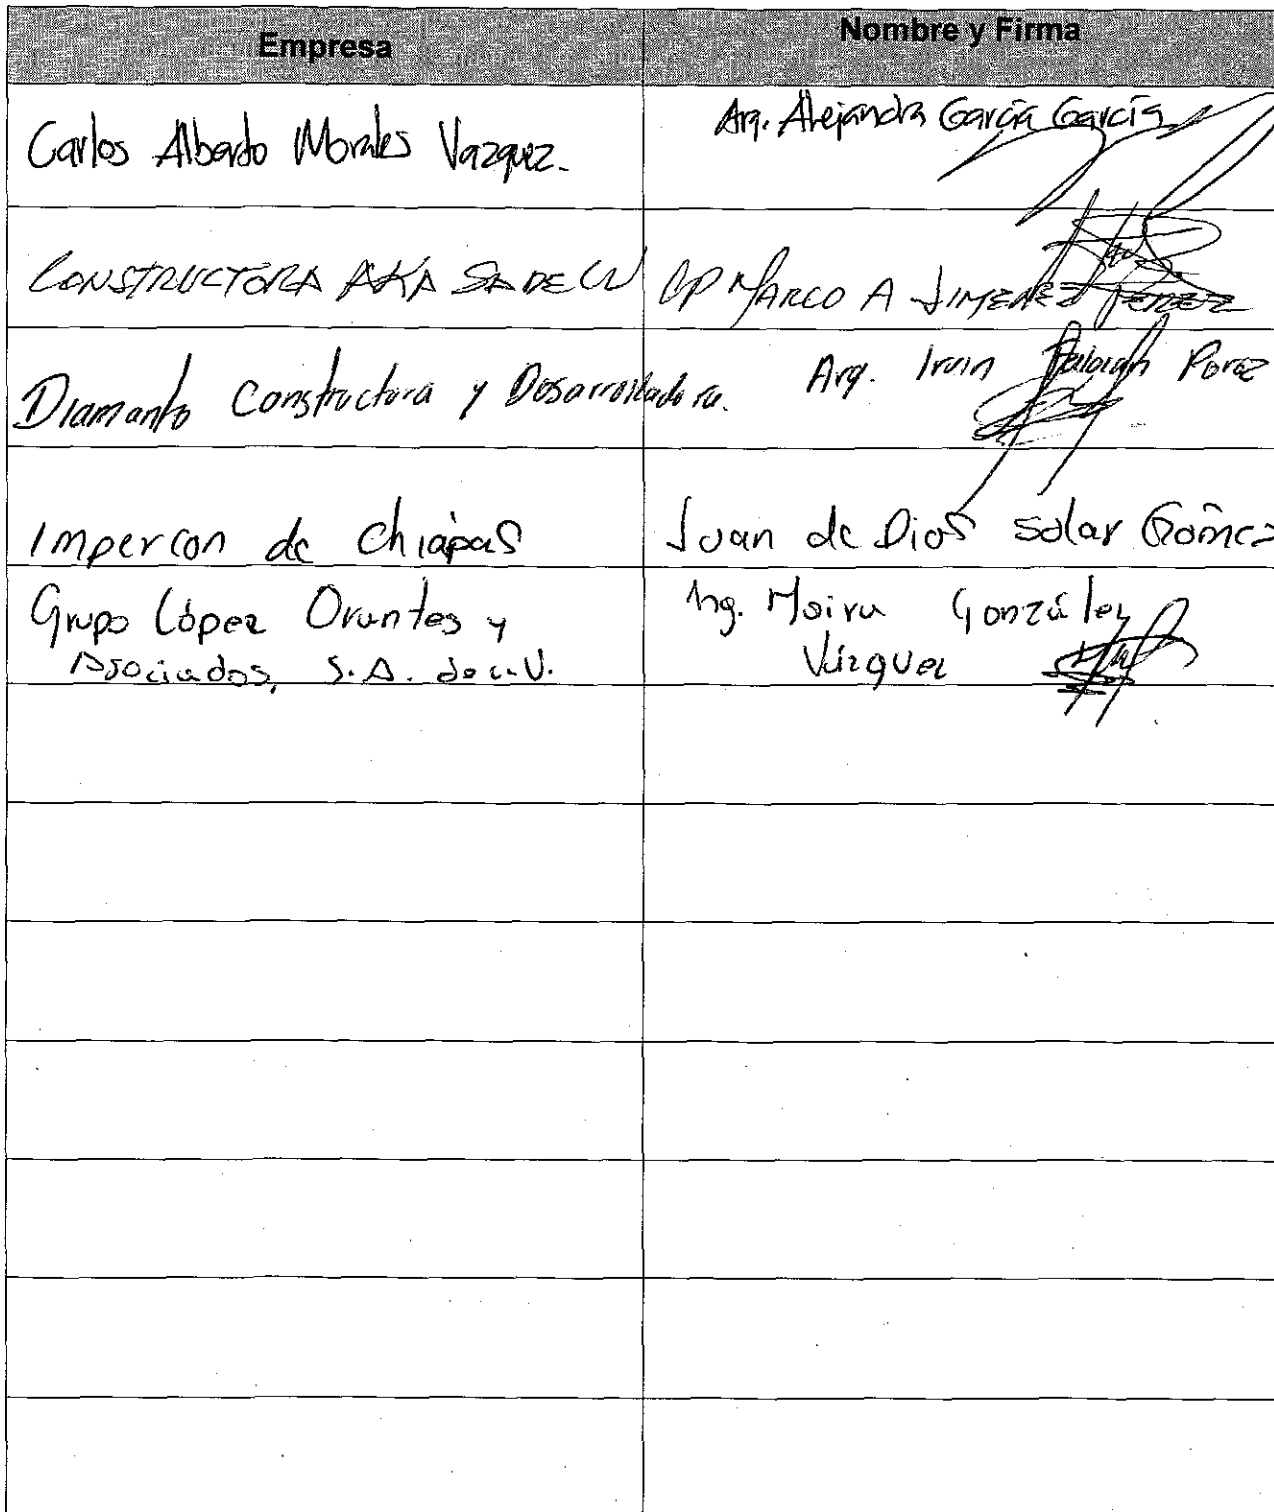 Empresa
Nombre y Firma
Carlos Alberto Morales Vazquez.
Arq. Alejandra García García
CONSTRUCTORA AKA SA DE CV
CP MARCO A JIMENEZ PEREZ
Diamante Constructora y Desarrolladora.
Arq. Irvin Perez
Impercon de Chiapas
Juan de Dios Solar Gómez
Grupo López Orantes y
Asociados, S.A. de C.V.
Ing. Moira González
Vázquez